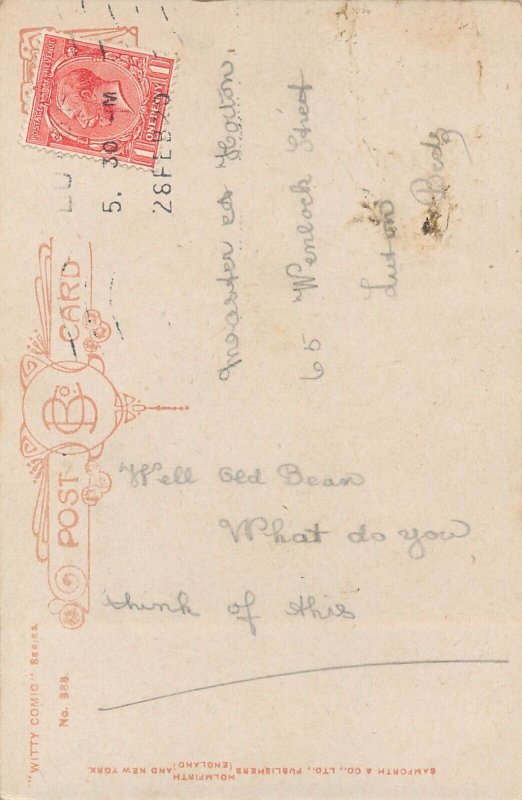 POST CARD
"WITTY COMIC" SERIES.
No. 988.
BAMFORTH & CO., LTD., PUBLISHERS (ENGLAND)
HOLMFIRTH AND NEW YORK
POSTAGE REVENUE
1 ONE PENNY 1
5. 30 PM
28 FEB
Master Horton.
65 Wenlock Street
Luton
Beds
Well Old Bean
What do you
think of this